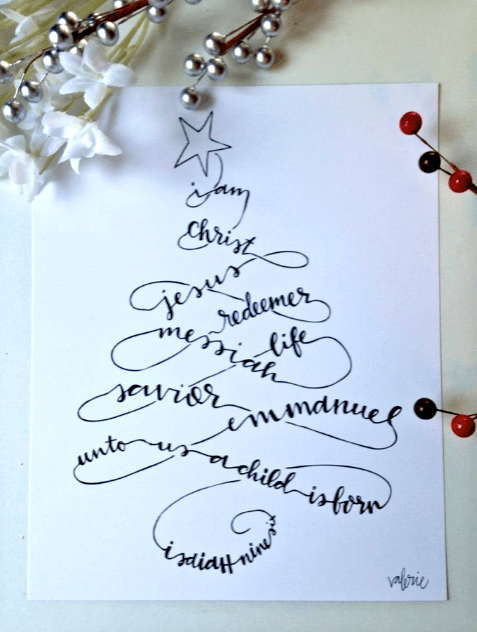 i am
christ
jesus
redeemer
messiah
life
savior
emmanuel
unto us a child is born
isaiah nine six
valerie